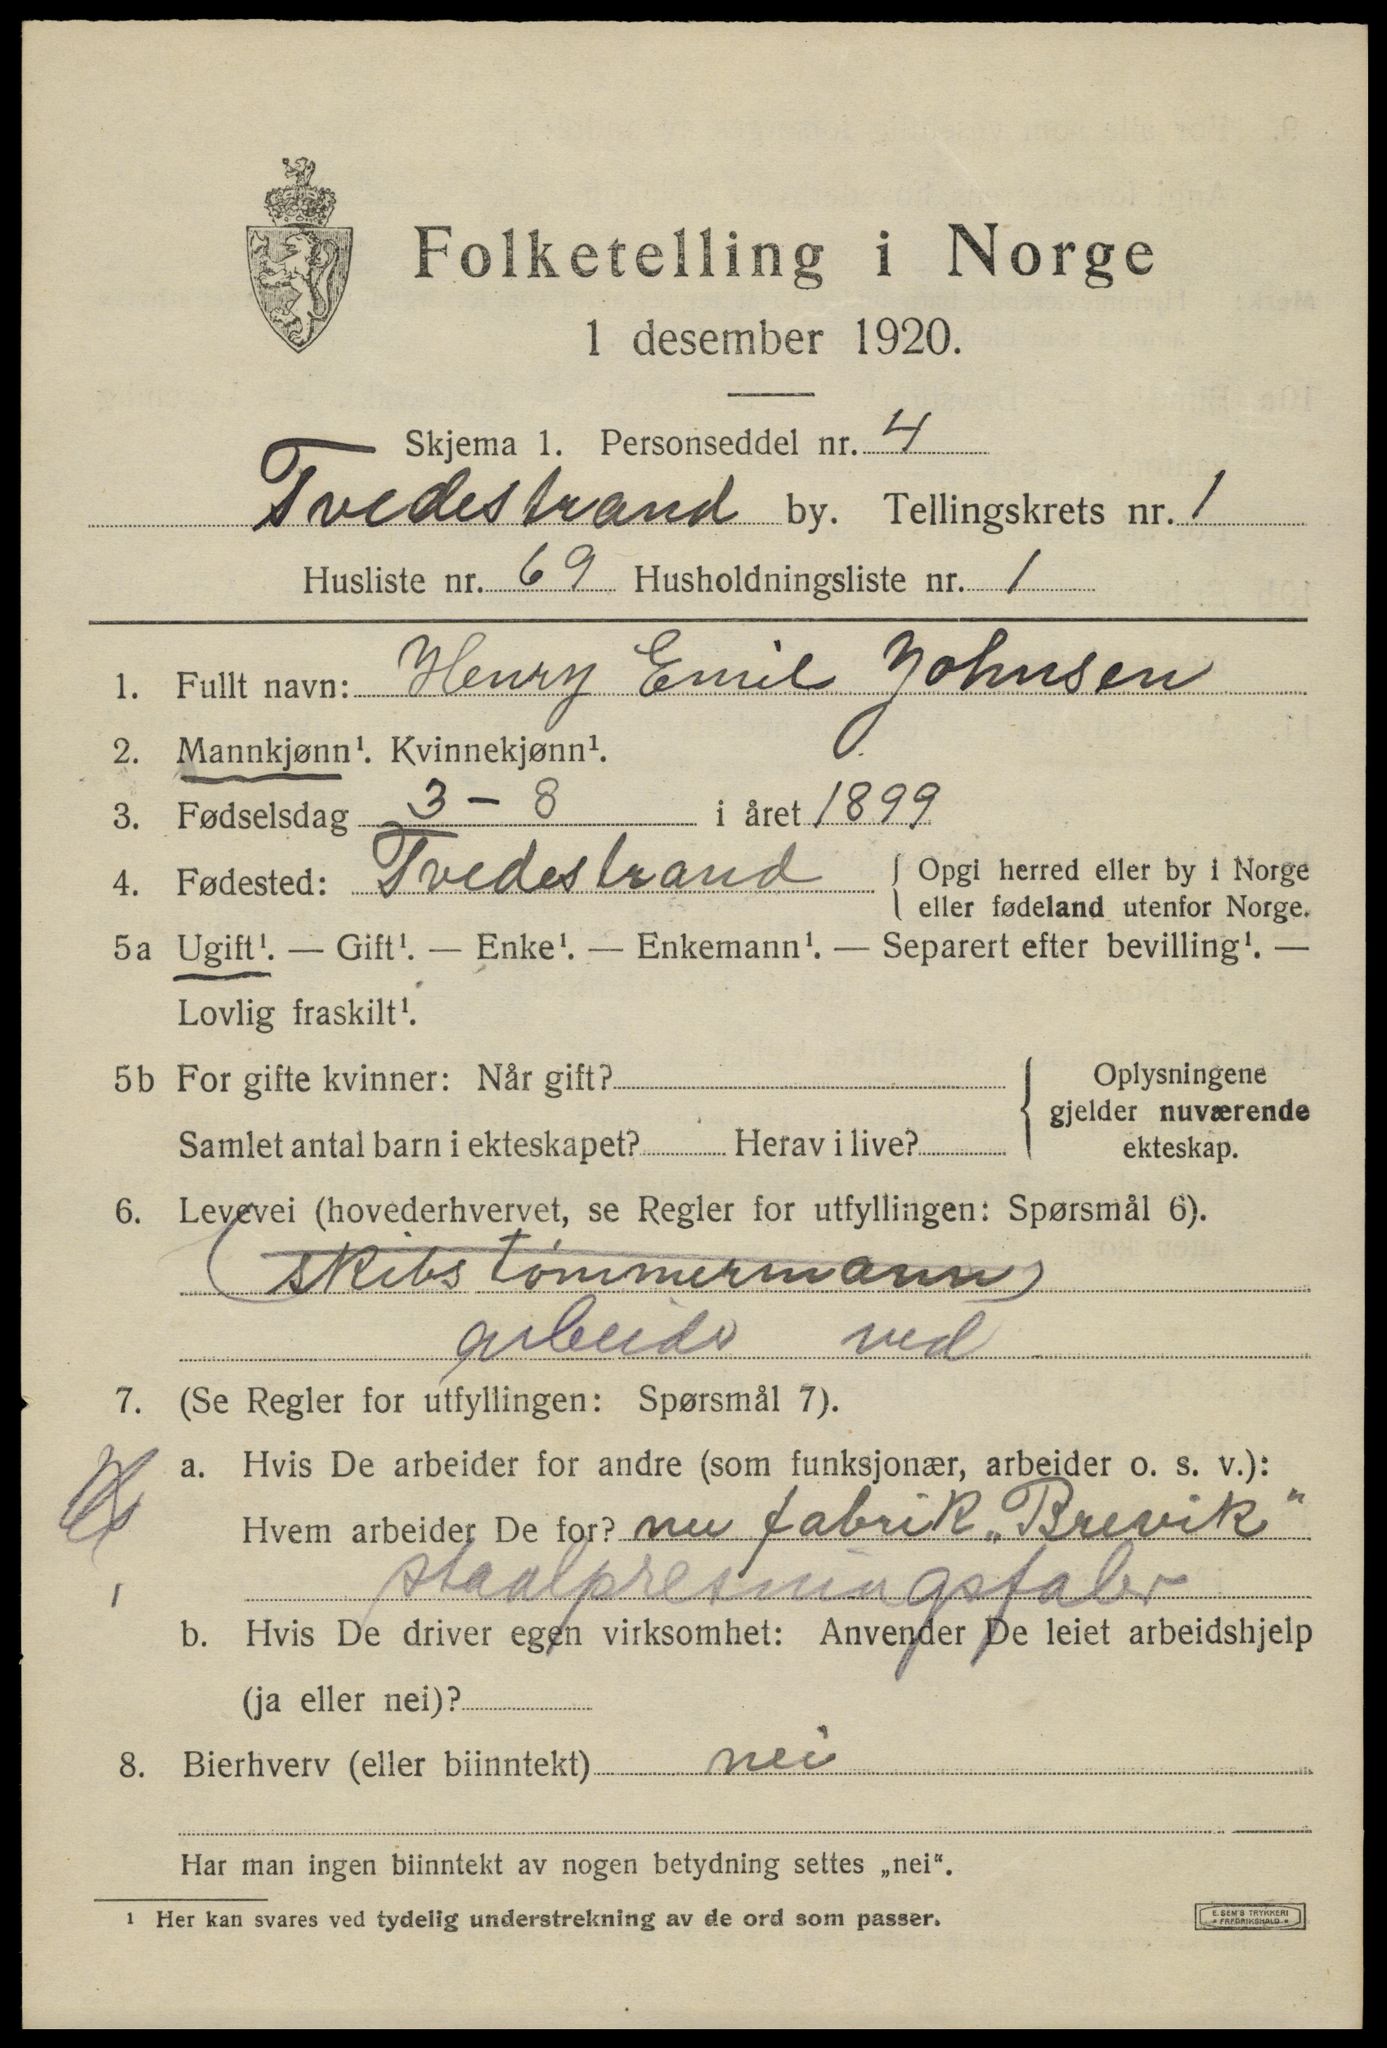 Folketelling i Norge
1 desember 1920.
Skjema 1. Personseddel nr. 4
Tvedestrand by. Tellingskrets nr. 1
Husliste nr. 69 Husholdningsliste nr. 1
1. Fullt navn: Henry Emil Johnsen
2. Mannkjønn¹. Kvinnekjønn¹.
3. Fødselsdag 3 – 8 i året 1899
4. Fødested: Tvedestrand { Opgi herred eller by i Norge
eller fødeland utenfor Norge.
5a Ugift¹. — Gift¹. — Enke¹. — Enkemann¹. — Separert efter bevilling¹. —
Lovlig fraskilt¹.
5b For gifte kvinner: Når gift? { Oplysningene
gjelder nuværende
Samlet antal barn i ekteskapet? Herav i live? ekteskap.
6. Levevei (hovederhvervet, se Regler for utfyllingen: Spørsmål 6).
(skibstømmermann)
arbeids ved
7. (Se Regler for utfyllingen: Spørsmål 7).
a. Hvis De arbeider for andre (som funksjonær, arbeider o. s. v.):
Hvem arbeider De for? nu fabrik „Brevik“
staalpresningsfabr
1
b. Hvis De driver egen virksomhet: Anvender De leiet arbeidshjelp
(ja eller nei)?
8. Bierhverv (eller biinntekt) nei
Har man ingen biinntekt av nogen betydning settes „nei“.
¹ Her kan svares ved tydelig understrekning av de ord som passer.
E. SEM'S TRYKKERI
FREDRIKSHALD